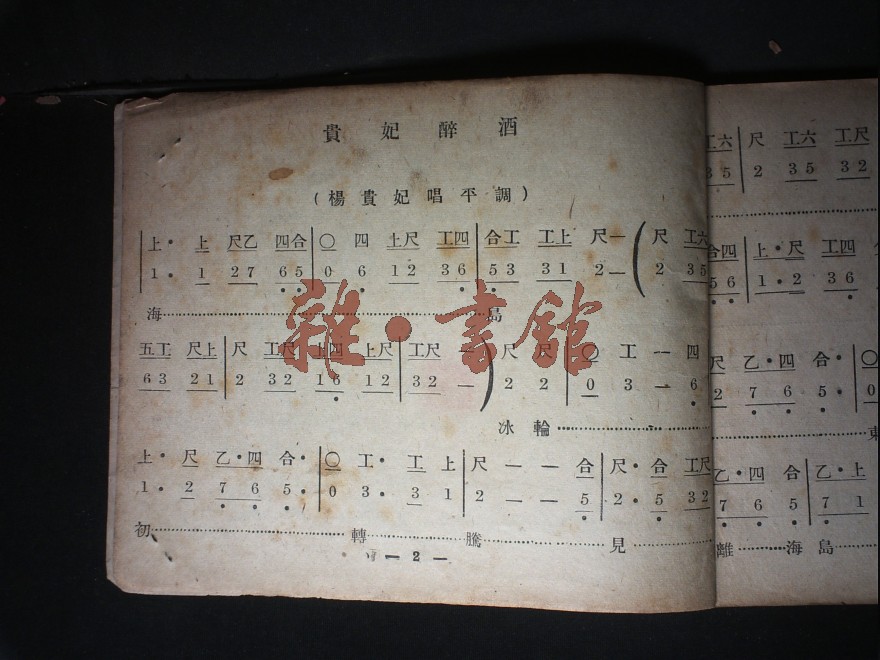 貴妃醉酒
(楊貴妃唱平調)
上· 上 尺乙 四合 | 〇 四 上尺 工四 | 合工 工上 尺一 ( 尺 工六
1· 1 27 65 | 0 6 12 36 | 53 31 2— ( 2 35
海…島
五工 尺上 | 尺 工尺 上四 上尺 | 工尺 — ) 尺 尺 | 〇 工 一 四
63 21 | 2 32 16 12 | 32 — ) 2 2 | 0 3 — 6
冰輪…
上· 尺 乙·四 合· | 〇 工· 工 上 | 尺 — — 合 | 尺· 合 工尺
1· 2 7·6 5· | 0 3· 3 1 | 2 — — 5 | 2· 5 32
初…轉…騰…見
—2—
工六 | 尺 工六 工尺
35 | 2 35 32
合四 | 上·尺 工四
56 | 1·2 36
乙·四 合· | 〇
2 7 6 5· | 0
東
乙·四 合 | 乙·上
7 6 5 | 7 1
離…海島…
雜·書館